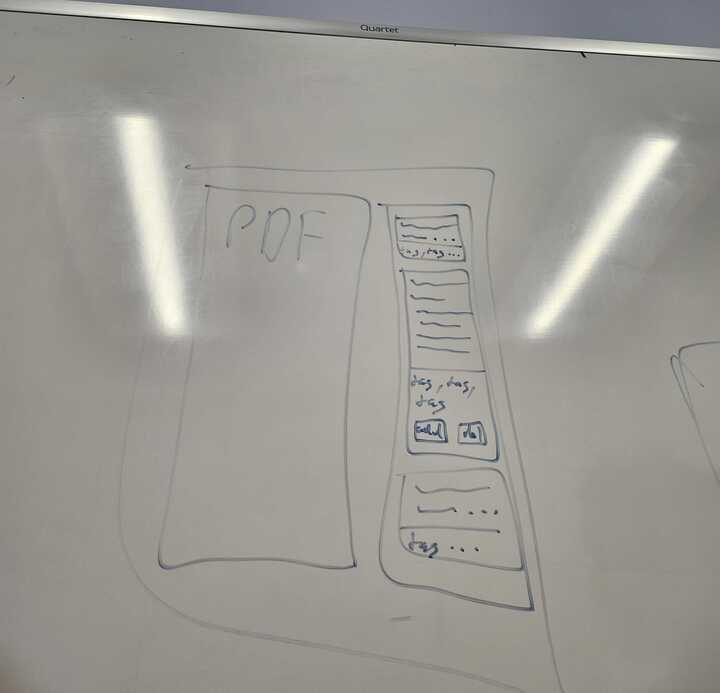 Quartet
PDF
tag, tag...
tag, tag,
tag
tag...